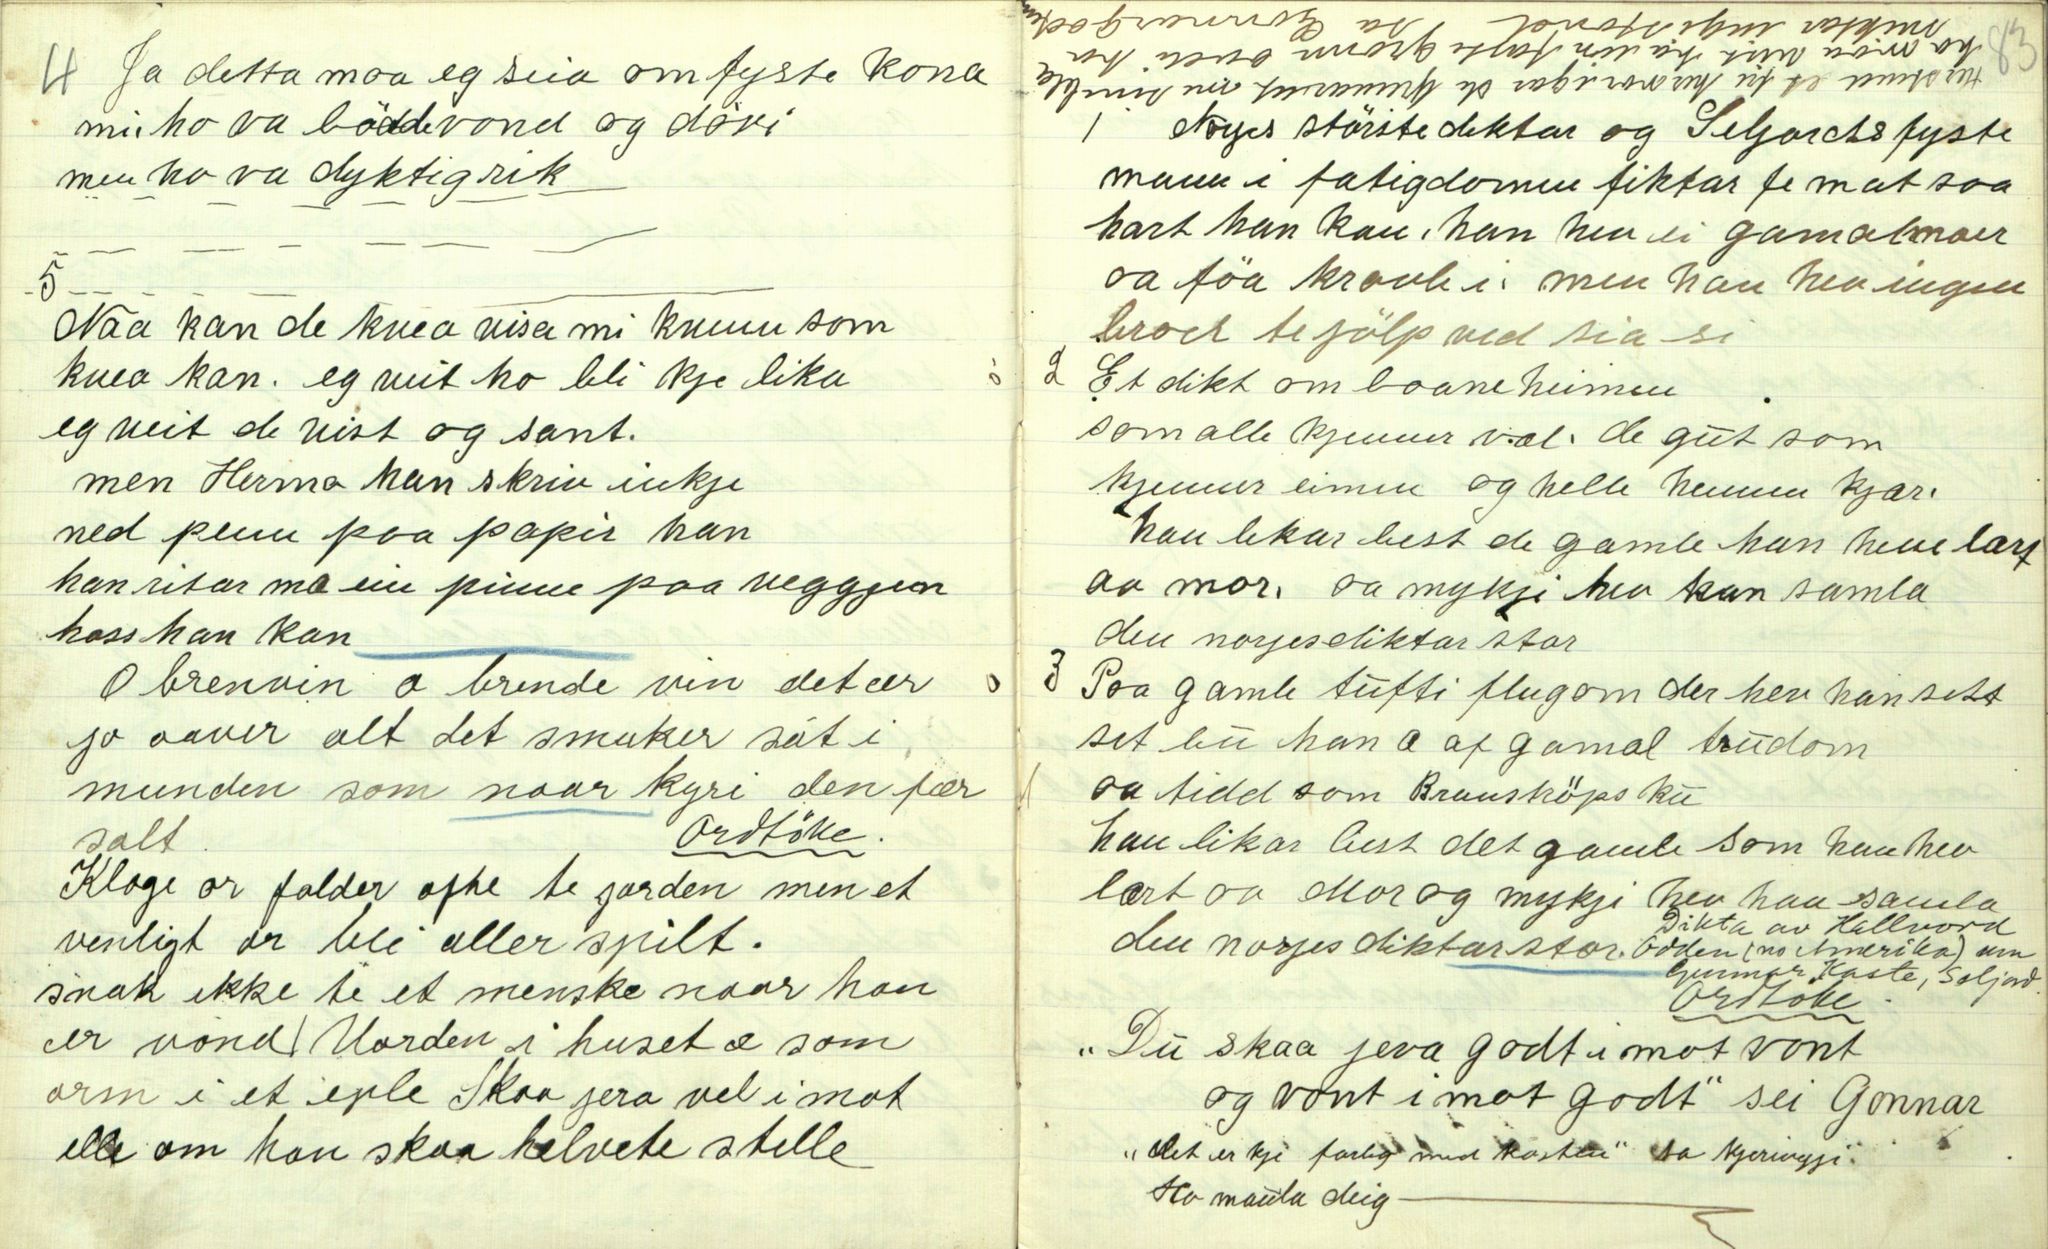 4 Ja detta maa eg seia om fyste kona
mi. ho va bådde vond og dövi
men ho va dyktig rik
5
Naa kan de kvea visa mi kvenn som
kvea kan. eg veit ho bli kje lika
eg veit de vist og sant.
men Herma han skriv inkje
ned penn paa papir han
han ritar mæ ein pinne paa veggjen
hoss han kan
O brenvin o brende vin det ær
jo aaver alt det smaker söt i
munden som naar kyri den fær
salt. Ordtöke.
Kloge or falder ofte te jorden men et
venligt or bli aller spilt.
snak ikke te et menske naar han
er vond) Uorden i huset æ som
orm i et eple Skaa jera vel i mot
elle om han skaa helvete stelle
83
1 Noges störste diktar og Seljords fyste
mann i fatigdomen fiktar fe mat saa
hart han kan. han hev ei gamal moer
aa föa kravle i. men han hev ingen
broer te jölp ved sia si
2 Et dikt om baaneheimen
som alle kjenner væl. de gut som
kjenner eimen og helle hennen kjær.
han likar best de gamle han heve lært
av mor. aa mykji hev han samla
den norjes diktar stor
3 Paa gamle tufti flugom der hev han sett
set bu han æ af gamal trudom
aa tidd som Brunsköps ku
han likar best det gamle som han hev
lært av Mor og mykji hev han samla
den norjes diktar stor. Dikta av Hallvord
Odden (no Amerika) um
Gunnar Kaste, Seljord.
Ordtöke.
"Du skaa jera godt i mot vont
og vont i mot godt" sei Gonnar
"det er kji farlig med kosten" sa kjeringji.
Ho maula deig